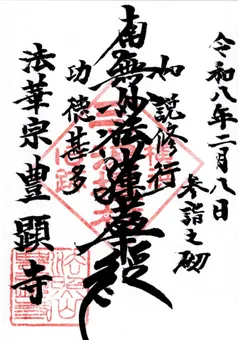 令和八年二月八日
参詣之砌
如説修行
南無妙法蓮華経
功徳甚多
法華宗豊顕寺